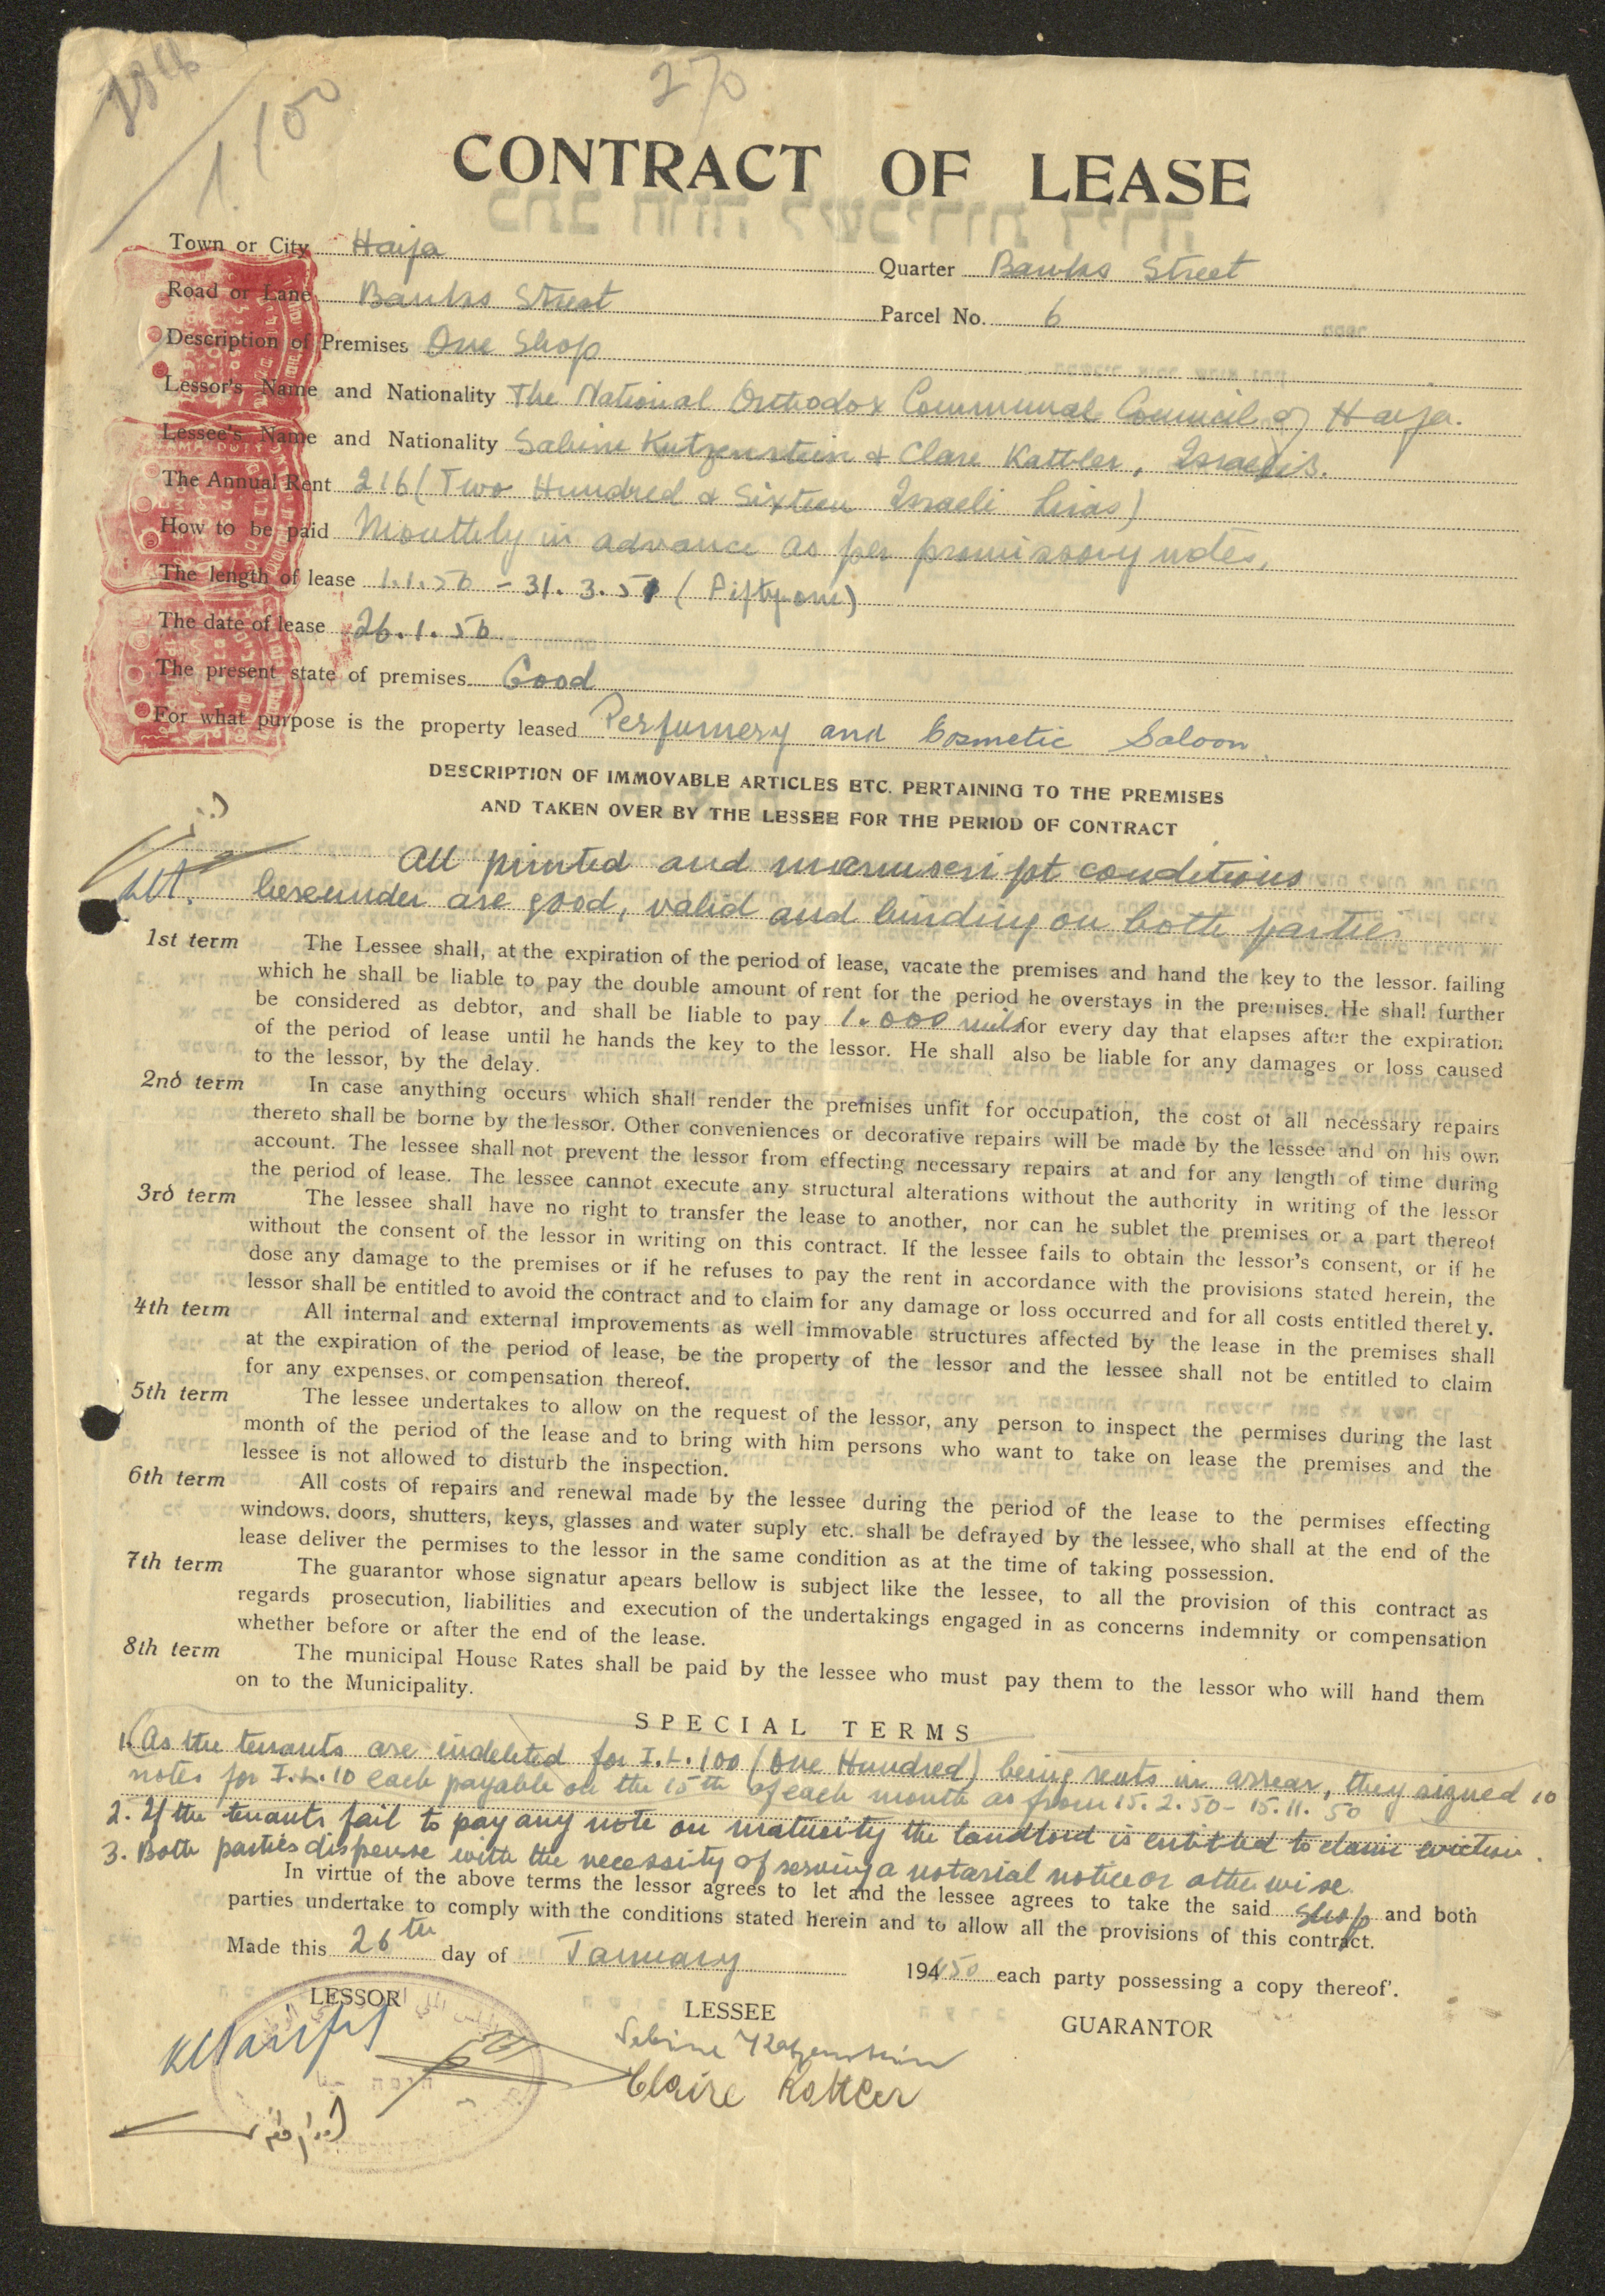 270
1/50
CONTRACT OF LEASE
Town or City Haifa
Quarter Banks Street
Road or Lane Banks Street
Parcel No. 6
Description of Premises One Shop
Lessor's Name and Nationality The National Orthodox Communal Council of Haifa.
Lessee's Name and Nationality Sabine Katzenstein & Clare Kattler, Israelis.
The Annual Rent 216 (Two Hundred & Sixteen Israeli Liras)
How to be paid Monthly in advance as per promissory notes.
The length of lease 1.1.50 - 31.3.51 (Fifty-one)
The date of lease 26.1.50
The present state of premises Good
For what purpose is the property leased Perfumery and Cosmetic Saloon.
DESCRIPTION OF IMMOVABLE ARTICLES ETC. PERTAINING TO THE PREMISES
AND TAKEN OVER BY THE LESSEE FOR THE PERIOD OF CONTRACT
All printed and manuscript conditions
hereunder are good, valid and binding on both parties
1st term The Lessee shall, at the expiration of the period of lease, vacate the premises and hand the key to the lessor. failing
which he shall be liable to pay the double amount of rent for the period he overstays in the premises. He shall further
be considered as debtor, and shall be liable to pay 1.000 mils for every day that elapses after the expiration
of the period of lease until he hands the key to the lessor. He shall also be liable for any damages or loss caused
to the lessor, by the delay.
2nd term In case anything occurs which shall render the premises unfit for occupation, the cost of all necessary repairs
thereto shall be borne by the lessor. Other conveniences or decorative repairs will be made by the lessee and on his own
account. The lessee shall not prevent the lessor from effecting necessary repairs at and for any length of time during
the period of lease. The lessee cannot execute any structural alterations without the authority in writing of the lessor
3rd term The lessee shall have no right to transfer the lease to another, nor can he sublet the premises or a part thereof
without the consent of the lessor in writing on this contract. If the lessee fails to obtain the lessor's consent, or if he
dose any damage to the premises or if he refuses to pay the rent in accordance with the provisions stated herein, the
lessor shall be entitled to avoid the contract and to claim for any damage or loss occurred and for all costs entitled thereby.
4th term All internal and external improvements as well immovable structures affected by the lease in the premises shall
at the expiration of the period of lease, be the property of the lessor and the lessee shall not be entitled to claim
for any expenses, or compensation thereof.
5th term The lessee undertakes to allow on the request of the lessor, any person to inspect the permises during the last
month of the period of the lease and to bring with him persons who want to take on lease the premises and the
lessee is not allowed to disturb the inspection.
6th term All costs of repairs and renewal made by the lessee during the period of the lease to the permises effecting
windows, doors, shutters, keys, glasses and water suply etc. shall be defrayed by the lessee, who shall at the end of the
lease deliver the permises to the lessor in the same condition as at the time of taking possession.
7th term The guarantor whose signatur apears bellow is subject like the lessee, to all the provision of this contract as
regards prosecution, liabilities and execution of the undertakings engaged in as concerns indemnity or compensation
whether before or after the end of the lease.
8th term The municipal House Rates shall be paid by the lessee who must pay them to the lessor who will hand them
on to the Municipality.
SPECIAL TERMS
1. As the tenants are indebted for I.L. 100 (One Hundred) being rents in arrear, they signed 10
notes for I.L. 10 each payable on the 15th of each month as from 15.2.50 - 15.11.50
2. If the tenants fail to pay any note on maturity the landlord is entitled to claim eviction.
3. Both parties dispense with the necessity of serving a notarial notice or otherwise.
In virtue of the above terms the lessor agrees to let and the lessee agrees to take the said Shop and both
parties undertake to comply with the conditions stated herein and to allow all the provisions of this contract.
Made this 26th day of January 194 50 each party possessing a copy thereof'.
LESSOR
LESSEE
GUARANTOR
Sabine Katzenstein
Claire Kattler